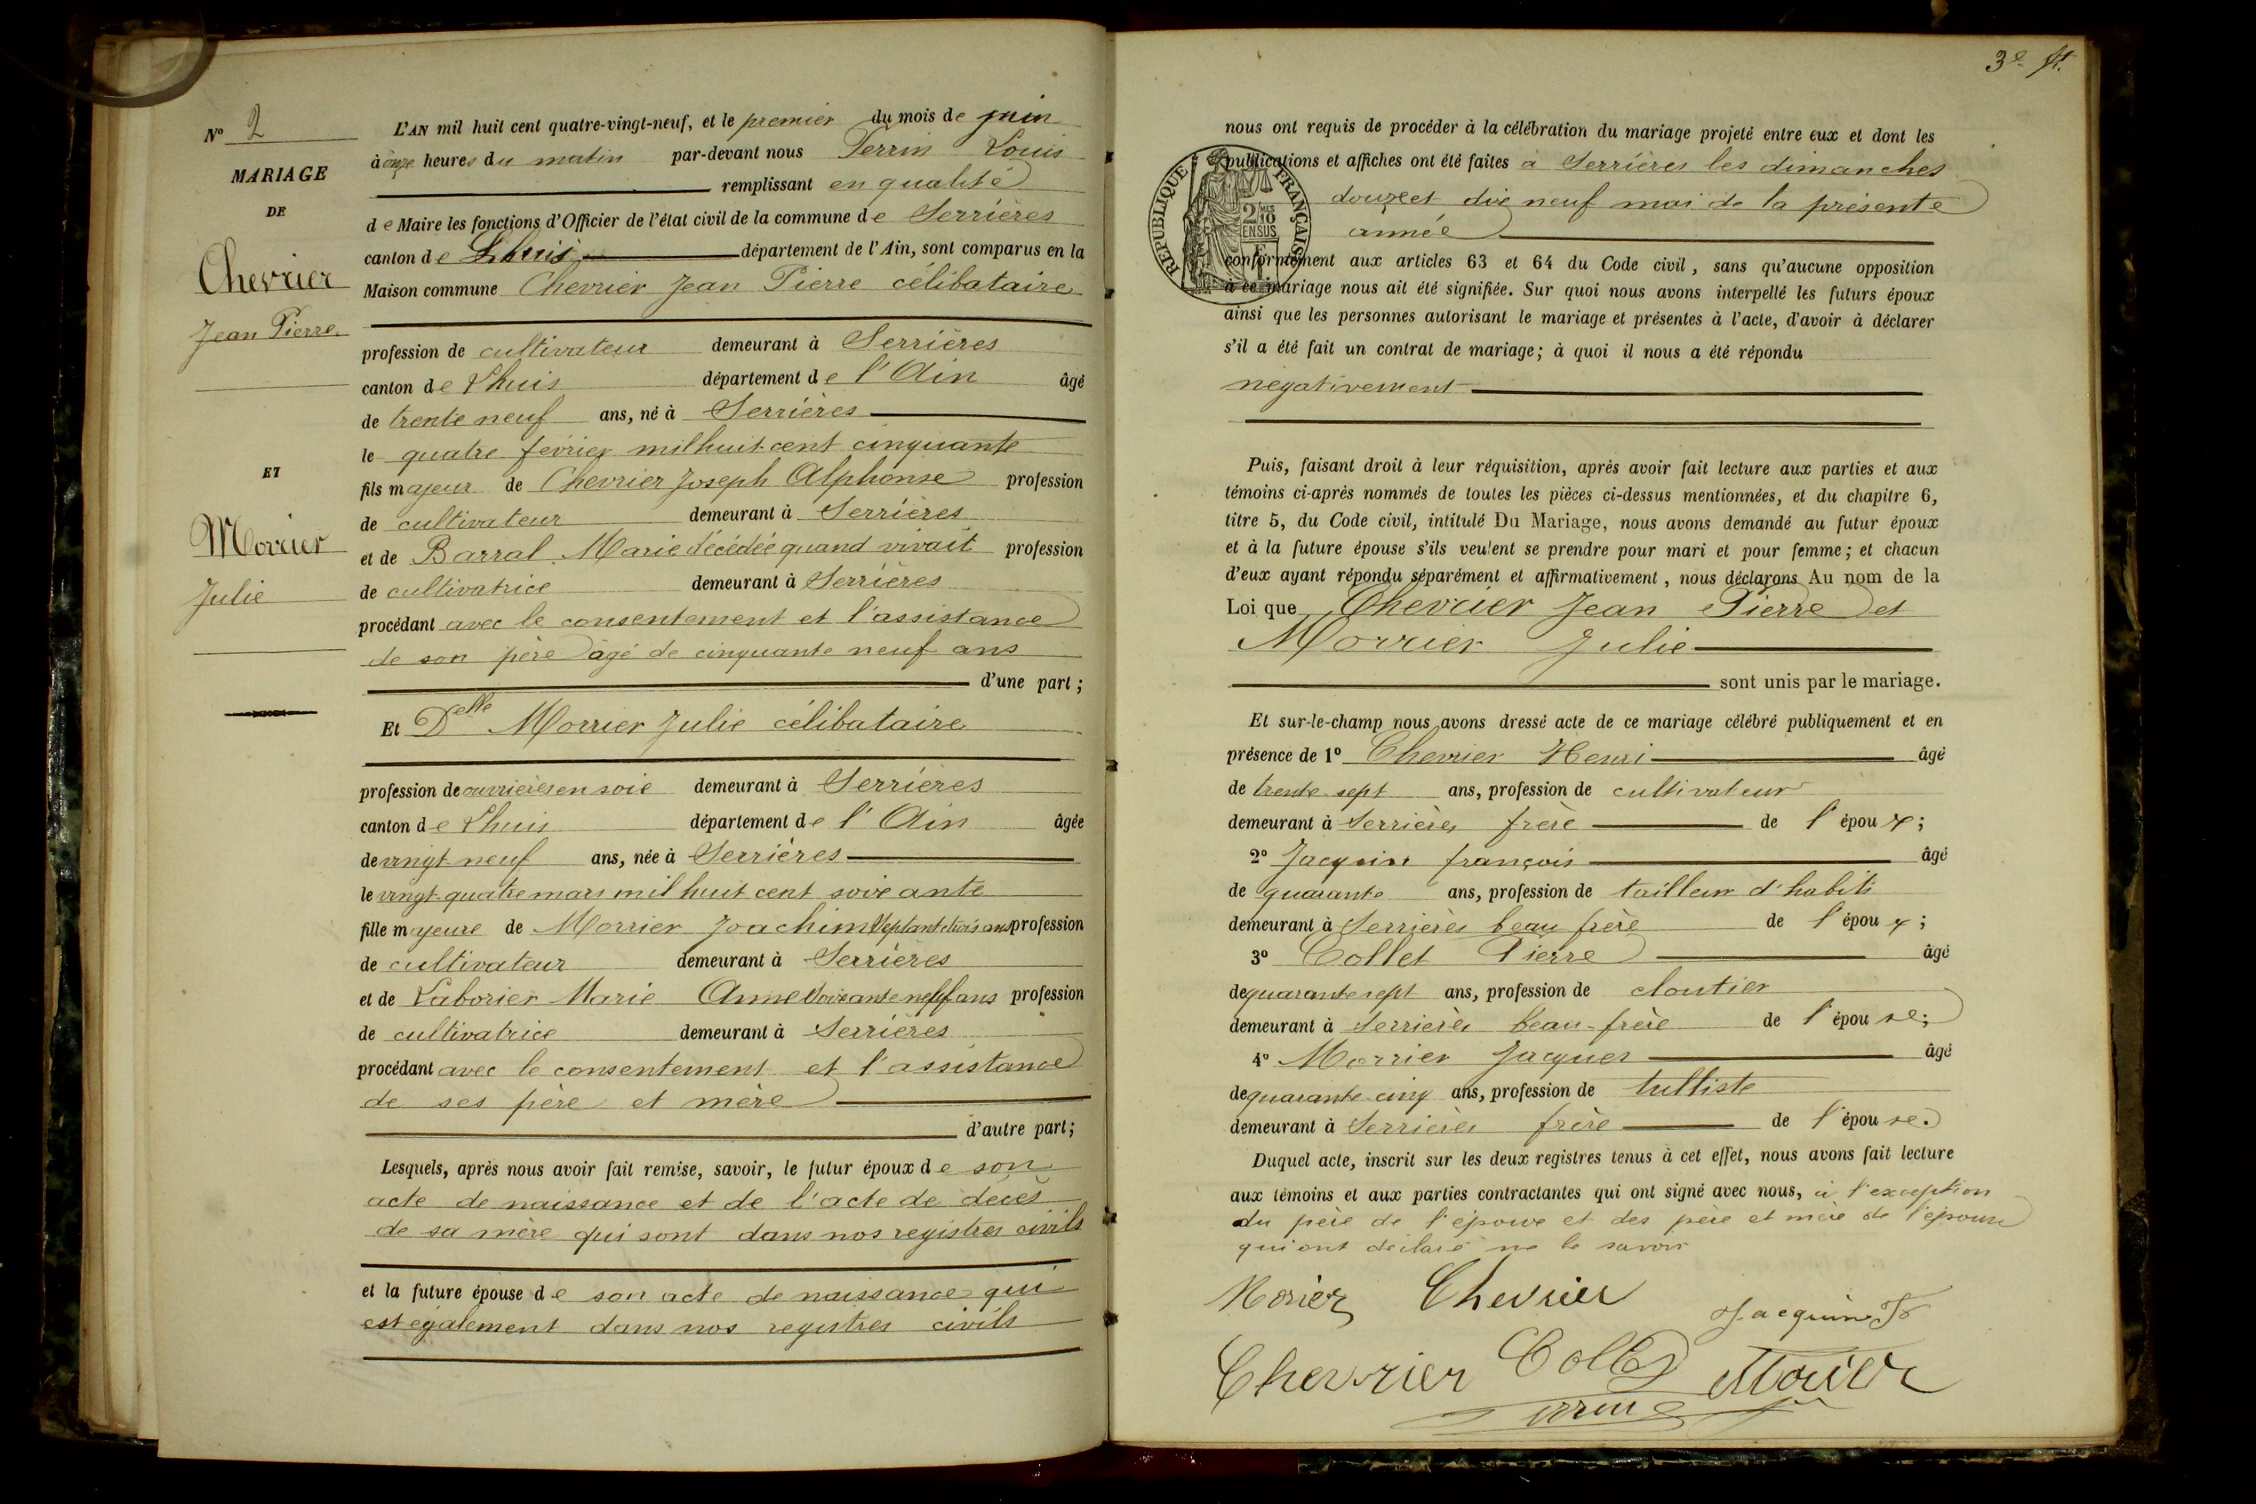 N° 2
MARIAGE
DE
Chevrier
Jean Pierre
ET
Morrier
Julie
L'AN mil huit cent quatre-vingt-neuf, et le premier du mois de juin
à onze heures du matin par-devant nous Perrin Louis
remplissant en qualité
de Maire les fonctions d'Officier de l'état civil de la commune de Serrières
canton de Lhuis département de l'Ain, sont comparus en la
Maison commune Chevrier Jean Pierre célibataire
profession de cultivateur demeurant à Serrières
canton de Lhuis département de l'Ain âgé
de trente neuf ans, né à Serrières
le quatre février mil huit cent cinquante
fils majeur de Chevrier Joseph Alphonse profession
de cultivateur demeurant à Serrières
et de Barral Marie décédée quand vivait profession
de cultivatrice demeurant à Serrières
procédant avec le consentement et l'assistance
de son père âgé de cinquante neuf ans
d'une part ;
Et Delle Morrier Julie célibataire
profession de ouvrière en soie demeurant à Serrières
canton de Lhuis département de l'Ain âgée
de vingt neuf ans, née à Serrières
le vingt quatre mars mil huit cent soixante
fille majeure de Morrier Joachim septante trois ans profession
de cultivateur demeurant à Serrières
et de Laborier Marie Anne soixante neuf ans profession
de cultivatrice demeurant à Serrières
procédant avec le consentement et l'assistance
de ses père et mère
d'autre part ;
Lesquels, après nous avoir fait remise, savoir, le futur époux de son
acte de naissance et de l'acte de décès
de sa mère qui sont dans nos registres civils
et la future épouse de son acte de naissance qui
est également dans nos registres civils
3e ft.
nous ont requis de procéder à la célébration du mariage projeté entre eux et dont les
publications et affiches ont été faites à Serrières les dimanches
douze et dix neuf mai de la présente
année
RÉPUBLIQUE FRANÇAISE
2/10 EN SUS
conformément aux articles 63 et 64 du Code civil, sans qu'aucune opposition
à ce mariage nous ait été signifiée. Sur quoi nous avons interpellé les futurs époux
ainsi que les personnes autorisant le mariage et présentes à l'acte, d'avoir à déclarer
s'il a été fait un contrat de mariage ; à quoi il nous a été répondu
négativement
Puis, faisant droit à leur réquisition, après avoir fait lecture aux parties et aux
témoins ci-après nommés de toutes les pièces ci-dessus mentionnées, et du chapitre 6,
titre 5, du Code civil, intitulé Du Mariage, nous avons demandé au futur époux
et à la future épouse s'ils veulent se prendre pour mari et pour femme ; et chacun
d'eux ayant répondu séparément et affirmativement, nous déclarons Au nom de la
Loi que Chevrier Jean Pierre et
Morrier Julie
sont unis par le mariage.
Et sur-le-champ nous avons dressé acte de ce mariage célébré publiquement et en
présence de 1° Chevrier Henri âgé
de trente sept ans, profession de cultivateur
demeurant à Serrières frère de l'époux ;
2° Jacquin françois âgé
de quarante ans, profession de tailleur d'habits
demeurant à Serrières beau frère de l'époux ;
3° Collet Pierre âgé
de quarante sept ans, profession de cloutier
demeurant à Serrières beau-frère de l'épouse ;
4° Morrier Jacques âgé
de quarante cinq ans, profession de tulliste
demeurant à Serrières frère de l'épouse.
Duquel acte, inscrit sur les deux registres tenus à cet effet, nous avons fait lecture
aux témoins et aux parties contractantes qui ont signé avec nous, à l'exception
du père de l'époux et des père et mère de l'épouse
qui ont déclaré ne le savoir
Morier Chevrier Jacquin F
Chevrier Collet Morier
Perrin